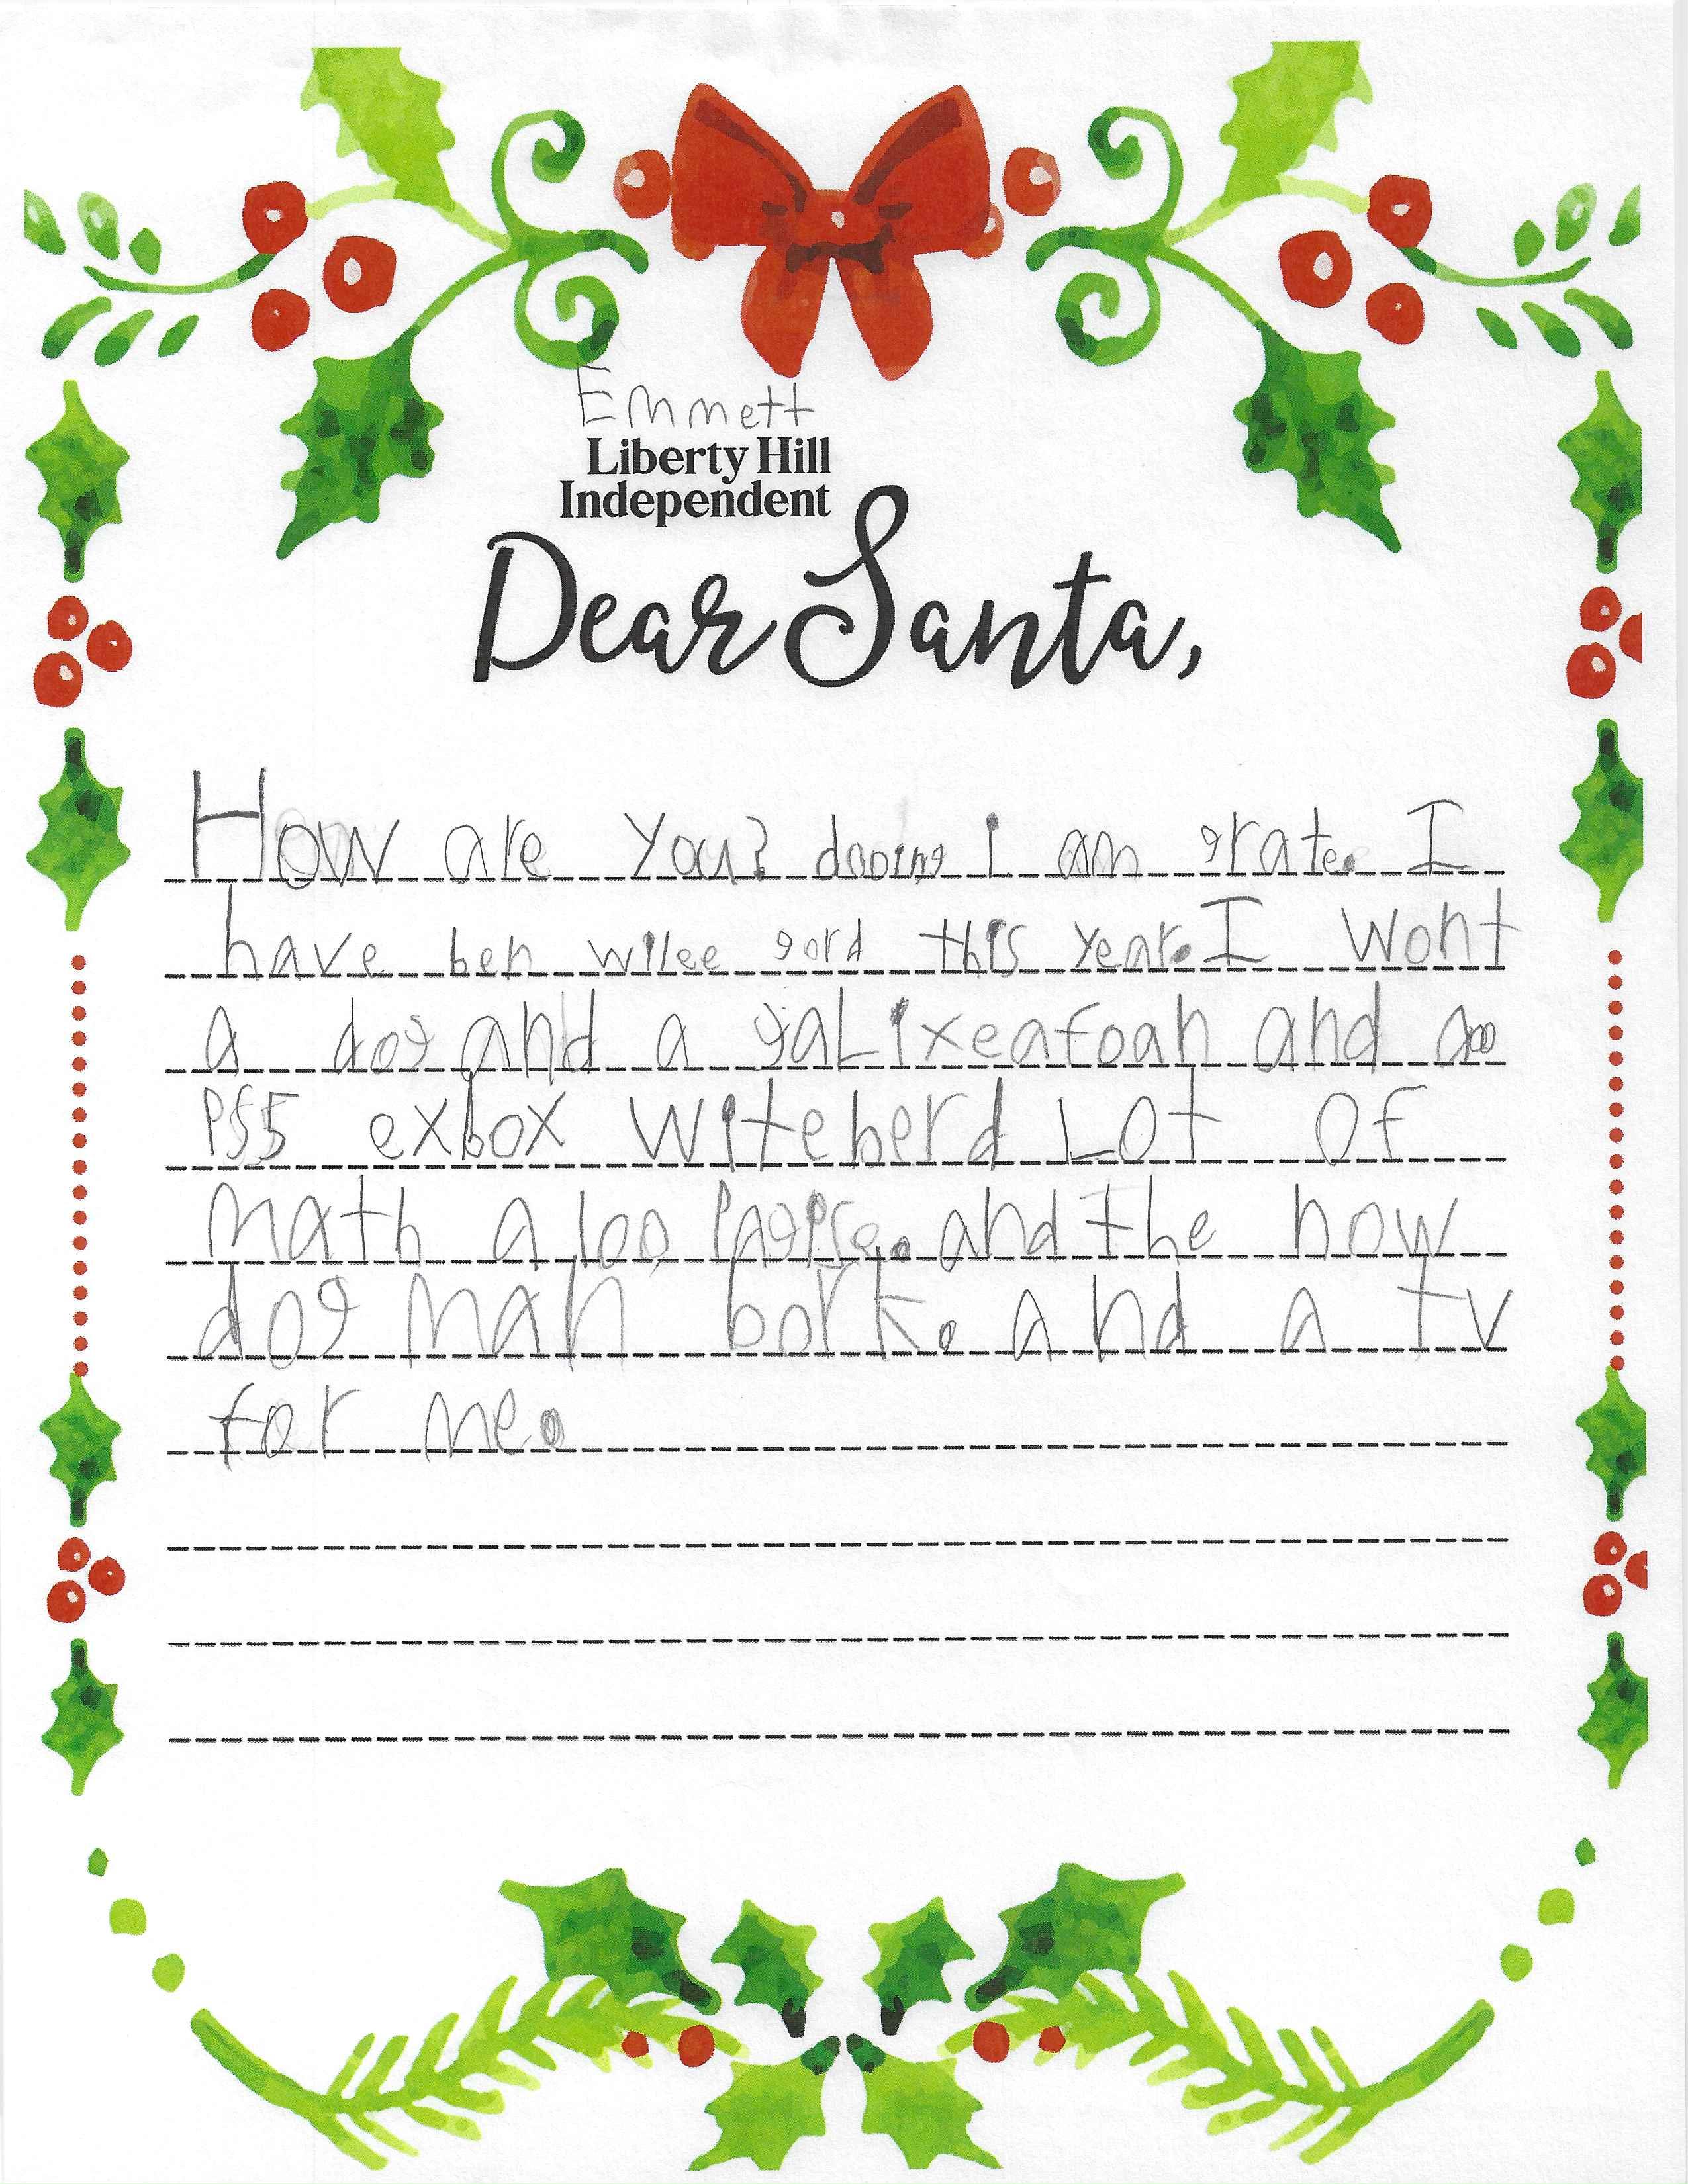 Emmett
Liberty Hill
Independent
Dear Santa,
How are you? dooing i am grate. I
have ben wilee gord this year. I wont
a dog and a galixeafoan and a
PS5 exbox witeberd Lot of
math a loo and the now
dog man bork. and a tv
for me.